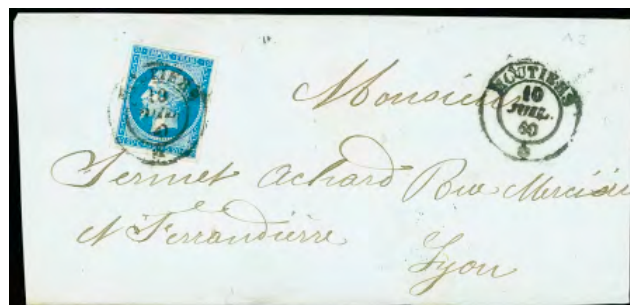 EMPIRE FRANC
MOUTIERS
10
JUIL.
60
Monsieur
Sermet Achard Rue Mercière
et Ferrandière
Lyon